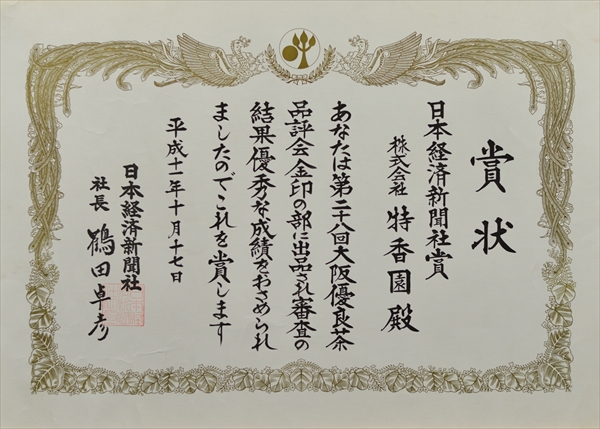 賞状
日本経済新聞社賞
株式会社 特香園殿
あなたは第二十八回大阪優良茶
品評会金印の部に出品され審査の
結果優秀な成績をおさめられ
ましたのでこれを賞します
平成十一年十月十七日
日本経済新聞社
社長 鶴田卓彦